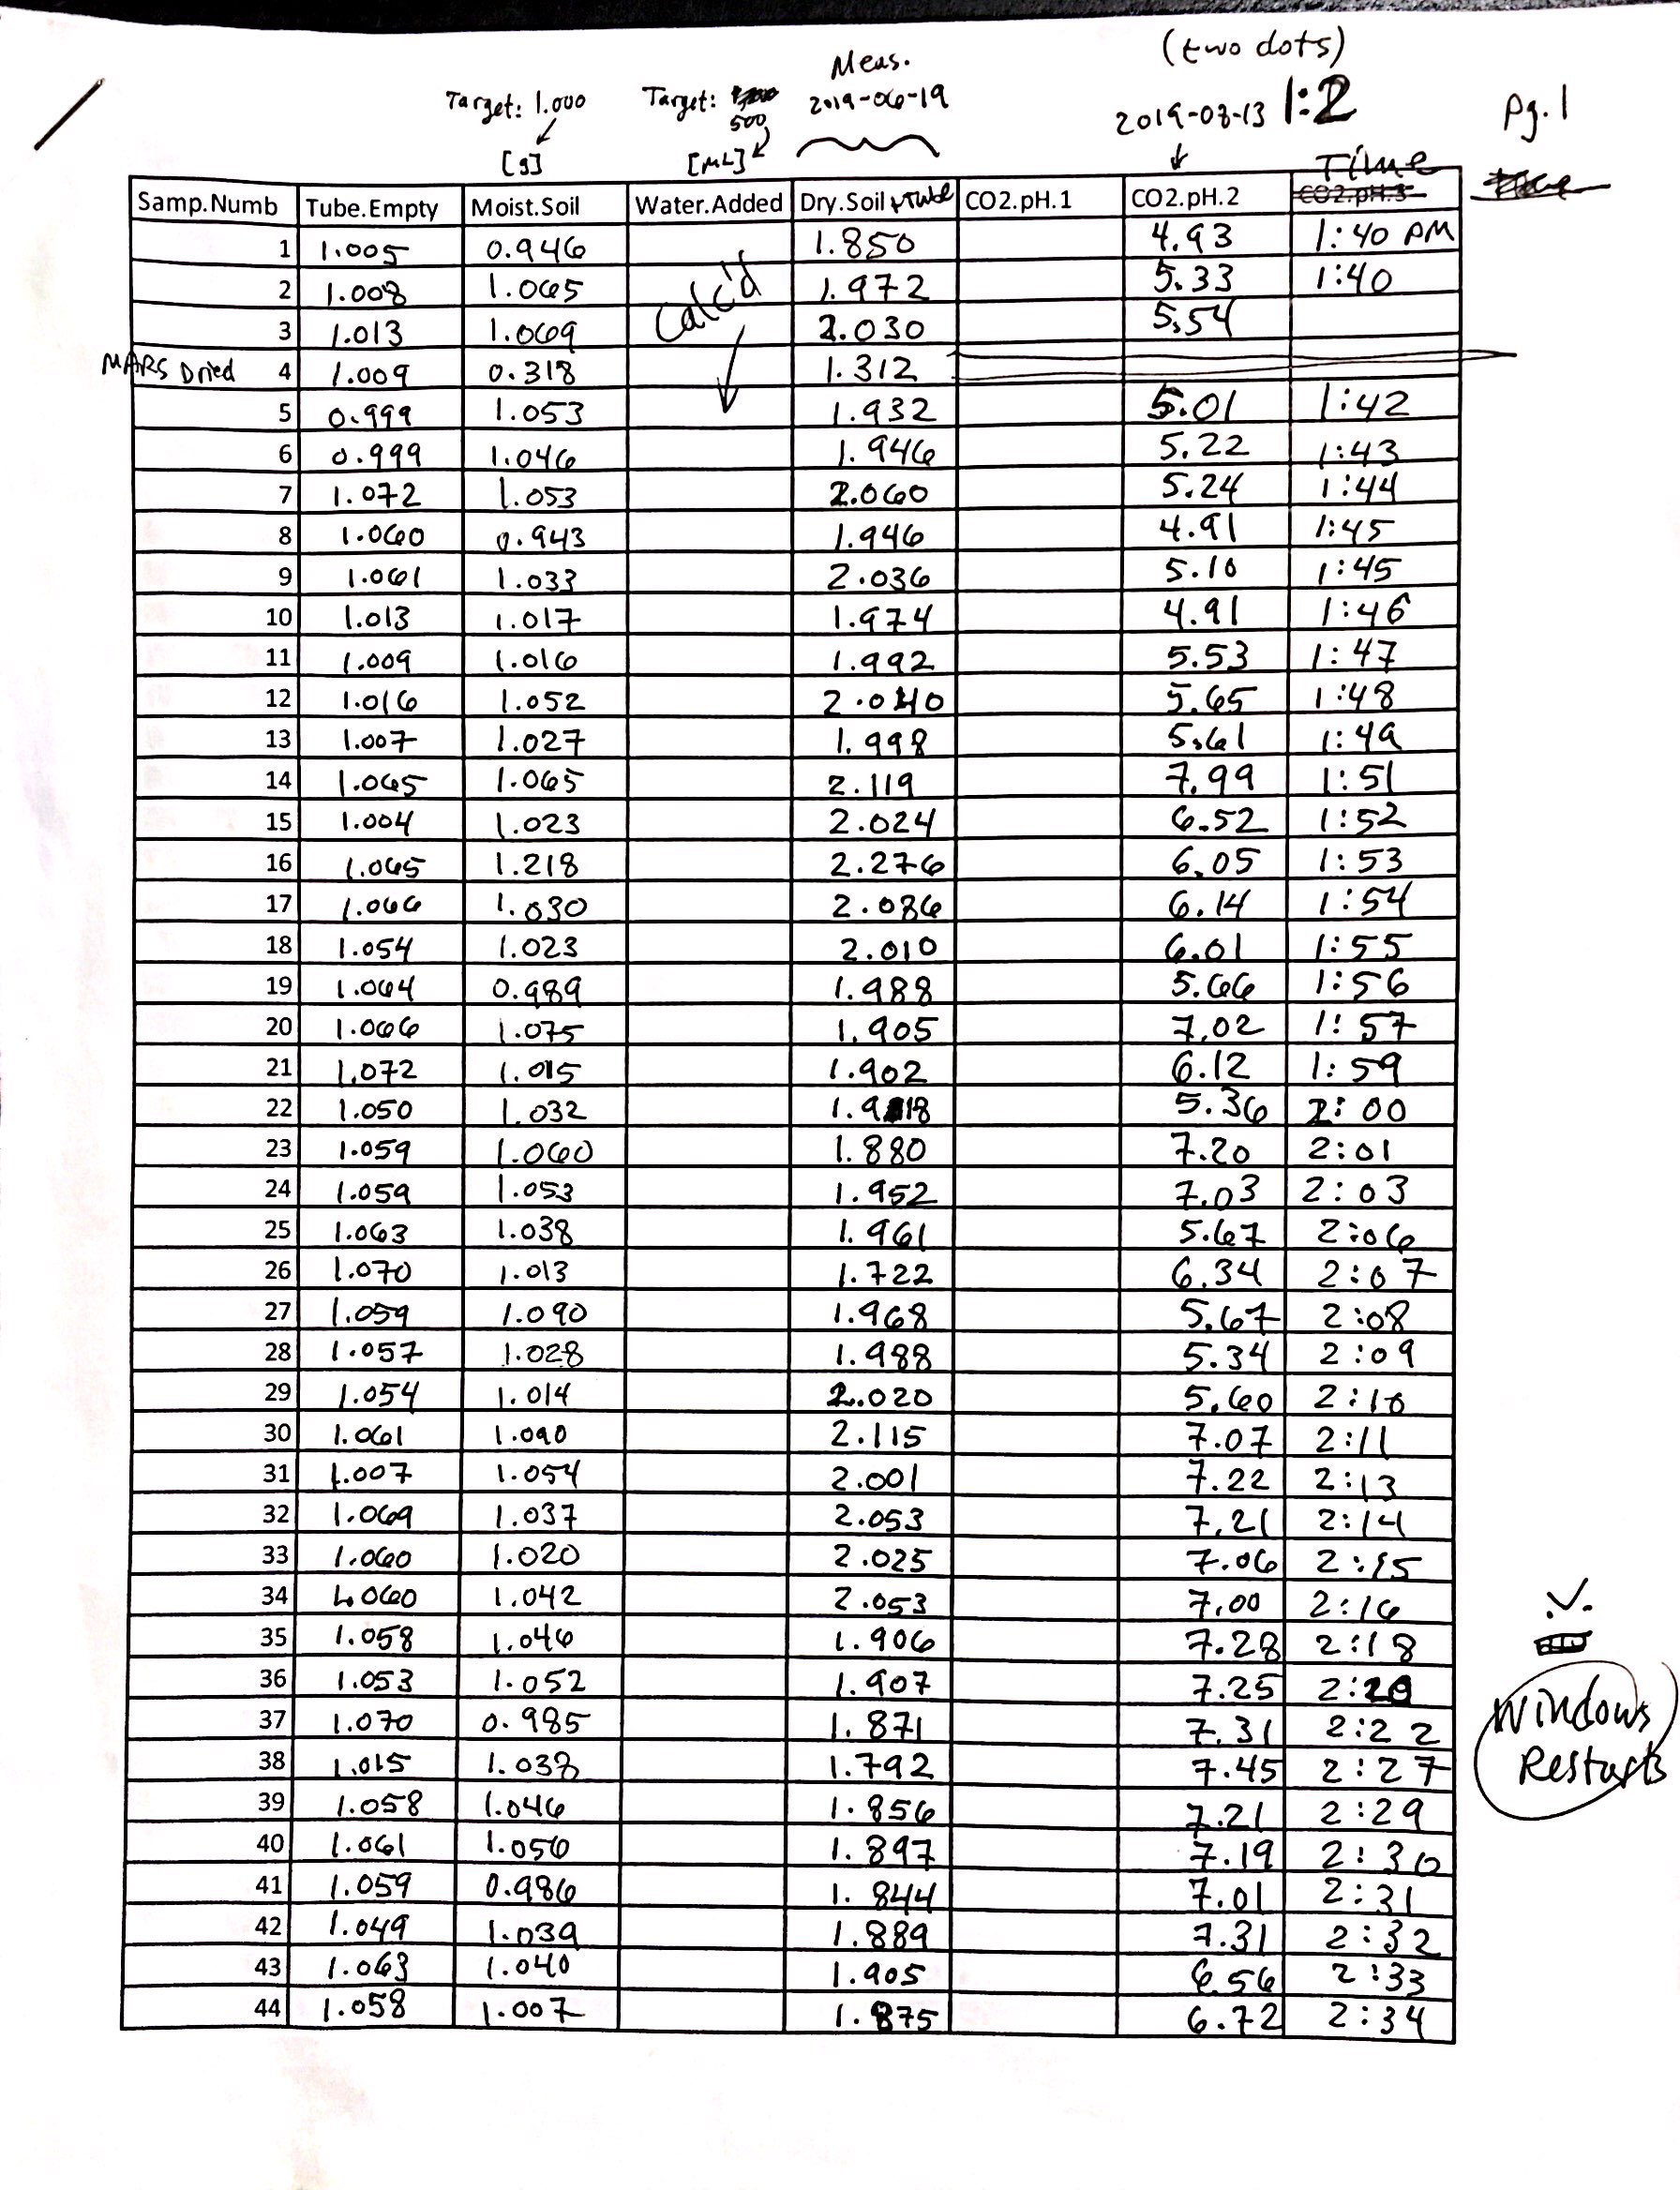 (two dots)
Meas.
Target: 1.000 Target: 500 2019-06-19 2019-08-13 1:2 Pg. 1
[g] [mL]
Time
Samp.Numb Tube.Empty Moist.Soil Water.Added Dry.Soil + Tube CO2.pH.1 CO2.pH.2 CO2.pH.3
1 1.005 0.946 1.850 4.93 1:40 PM
2 1.008 1.065 Calc'd 1.972 5.33 1:40
3 1.013 1.069 2.030 5.54
MARS Dried 4 1.009 0.318 1.312
5 0.999 1.053 1.932 5.01 1:42
6 0.999 1.046 1.946 5.22 1:43
7 1.072 1.053 2.060 5.24 1:44
8 1.060 0.943 1.946 4.91 1:45
9 1.061 1.033 2.036 5.10 1:45
10 1.013 1.017 1.974 4.91 1:46
11 1.009 1.016 1.992 5.53 1:47
12 1.016 1.052 2.040 5.65 1:48
13 1.007 1.027 1.998 5.61 1:49
14 1.065 1.065 2.119 7.99 1:51
15 1.004 1.023 2.024 6.52 1:52
16 1.065 1.218 2.276 6.05 1:53
17 1.066 1.030 2.086 6.14 1:54
18 1.054 1.023 2.010 6.01 1:55
19 1.064 0.989 1.988 5.66 1:56
20 1.066 1.075 1.905 7.02 1:57
21 1.072 1.015 1.902 6.12 1:59
22 1.050 1.032 1.918 5.36 2:00
23 1.059 1.060 1.880 7.20 2:01
24 1.059 1.053 1.952 7.03 2:03
25 1.063 1.038 1.961 5.67 2:06
26 1.070 1.013 1.722 6.34 2:07
27 1.059 1.090 1.968 5.67 2:08
28 1.057 1.028 1.988 5.34 2:09
29 1.054 1.014 2.020 5.60 2:10
30 1.061 1.090 2.115 7.07 2:11
31 1.007 1.054 2.001 7.22 2:13
32 1.069 1.037 2.053 7.21 2:14
33 1.060 1.020 2.025 7.06 2:15
34 1.060 1.042 2.053 7.00 2:16
35 1.058 1.046 1.906 7.28 2:18
36 1.053 1.052 1.907 7.25 2:20
37 1.070 0.985 1.871 7.31 2:22 Windows
38 1.015 1.038 1.792 7.45 2:27 Restarts
39 1.058 1.046 1.856 7.21 2:29
40 1.061 1.056 1.897 7.19 2:30
41 1.059 0.986 1.844 7.01 2:31
42 1.049 1.039 1.889 7.31 2:32
43 1.063 1.040 1.905 6.56 2:33
44 1.058 1.007 1.875 6.72 2:34